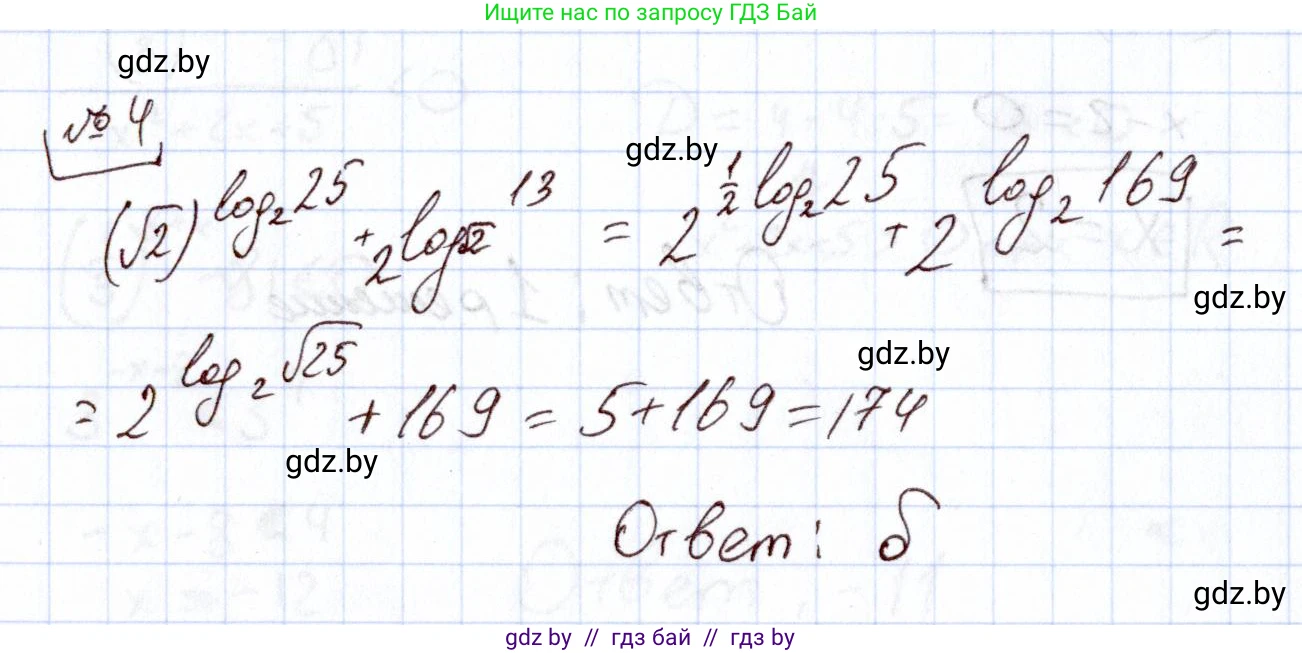 Ищите нас по запросу ГДЗ Бай
gdz.by
№ 4
gdz.by
(√2)^log₂25 + 2^log√2 13 = 2^½log₂25 + 2^log₂169 =
gdz.by
gdz.by
= 2^log₂√25 + 169 = 5 + 169 = 174
gdz.by
Ответ: б
gdz.by
gdz by // гдз бай // гдз by